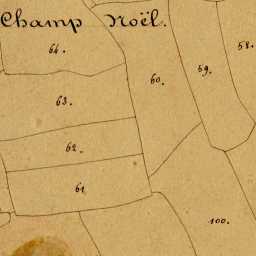 Champ Noël.
64.
58.
59.
60.
63.
62.
61
100.